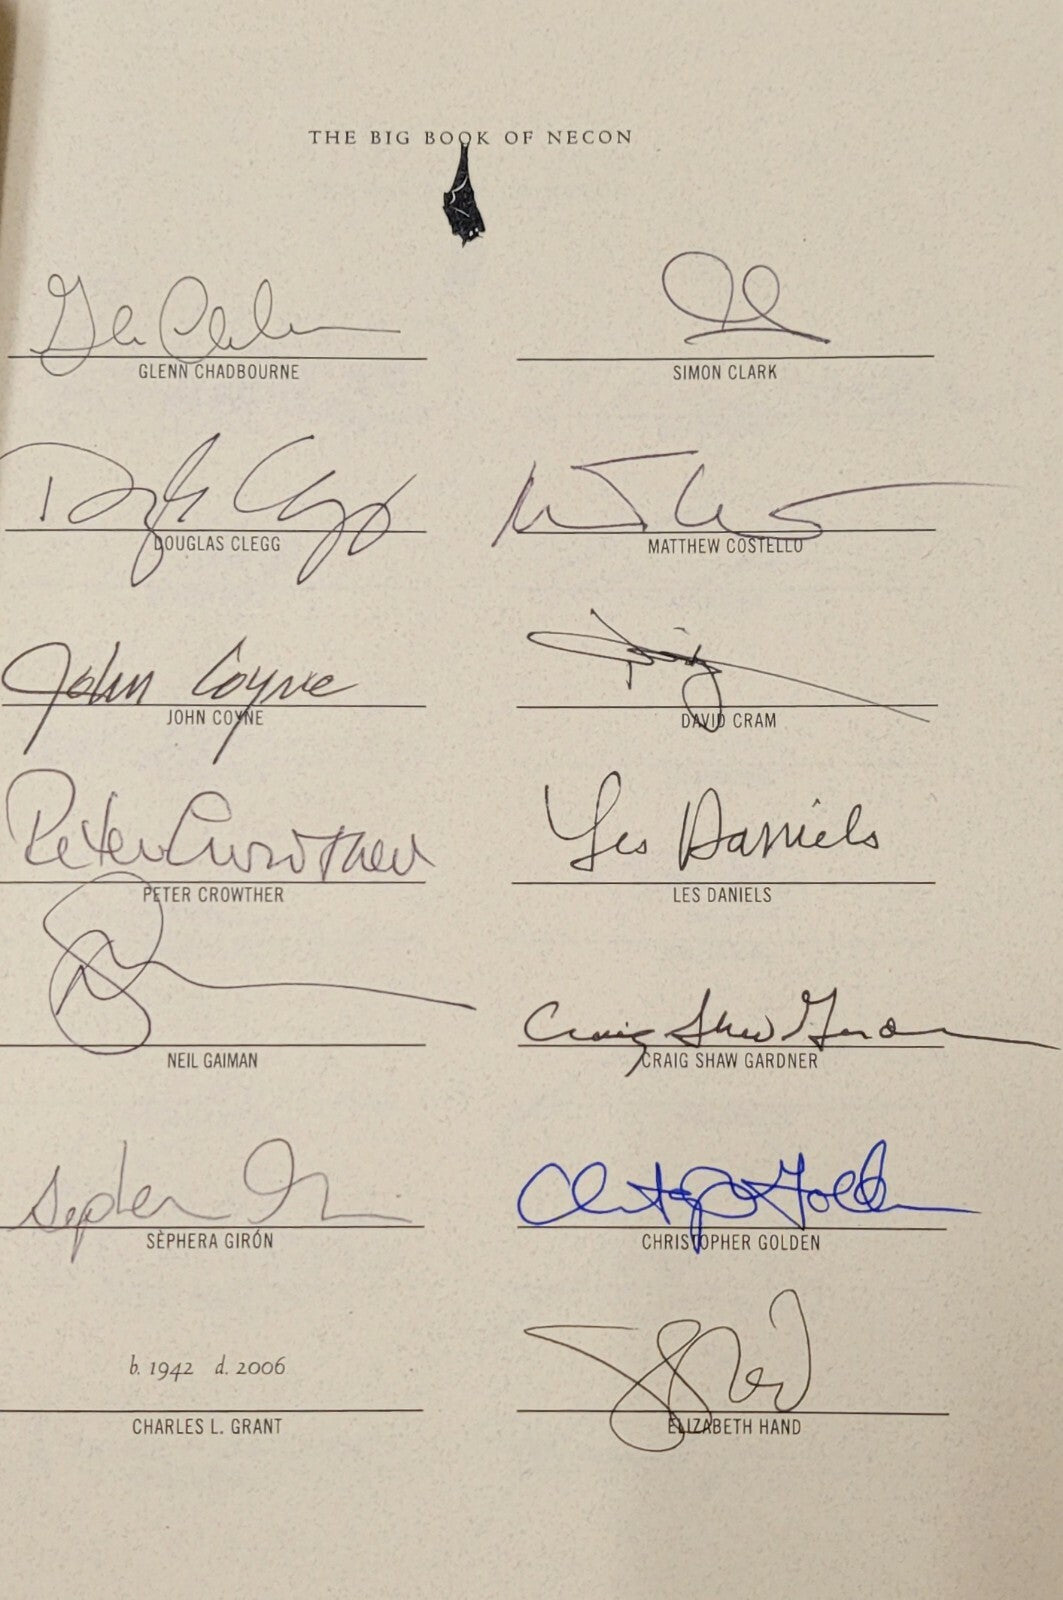 THE BIG BOOK OF NECON
GLENN CHADBOURNE
SIMON CLARK
Douglas Clegg
DOUGLAS CLEGG
MATTHEW COSTELLO
John Coyne
JOHN COYNE
DAVID CRAM
Peter Crowther
PETER CROWTHER
Les Daniels
LES DANIELS
NEIL GAIMAN
Craig Shaw Gardner
CRAIG SHAW GARDNER
SÈPHERA GIRÓN
Christopher Golden
CHRISTOPHER GOLDEN
b. 1942 d. 2006
CHARLES L. GRANT
ELIZABETH HAND